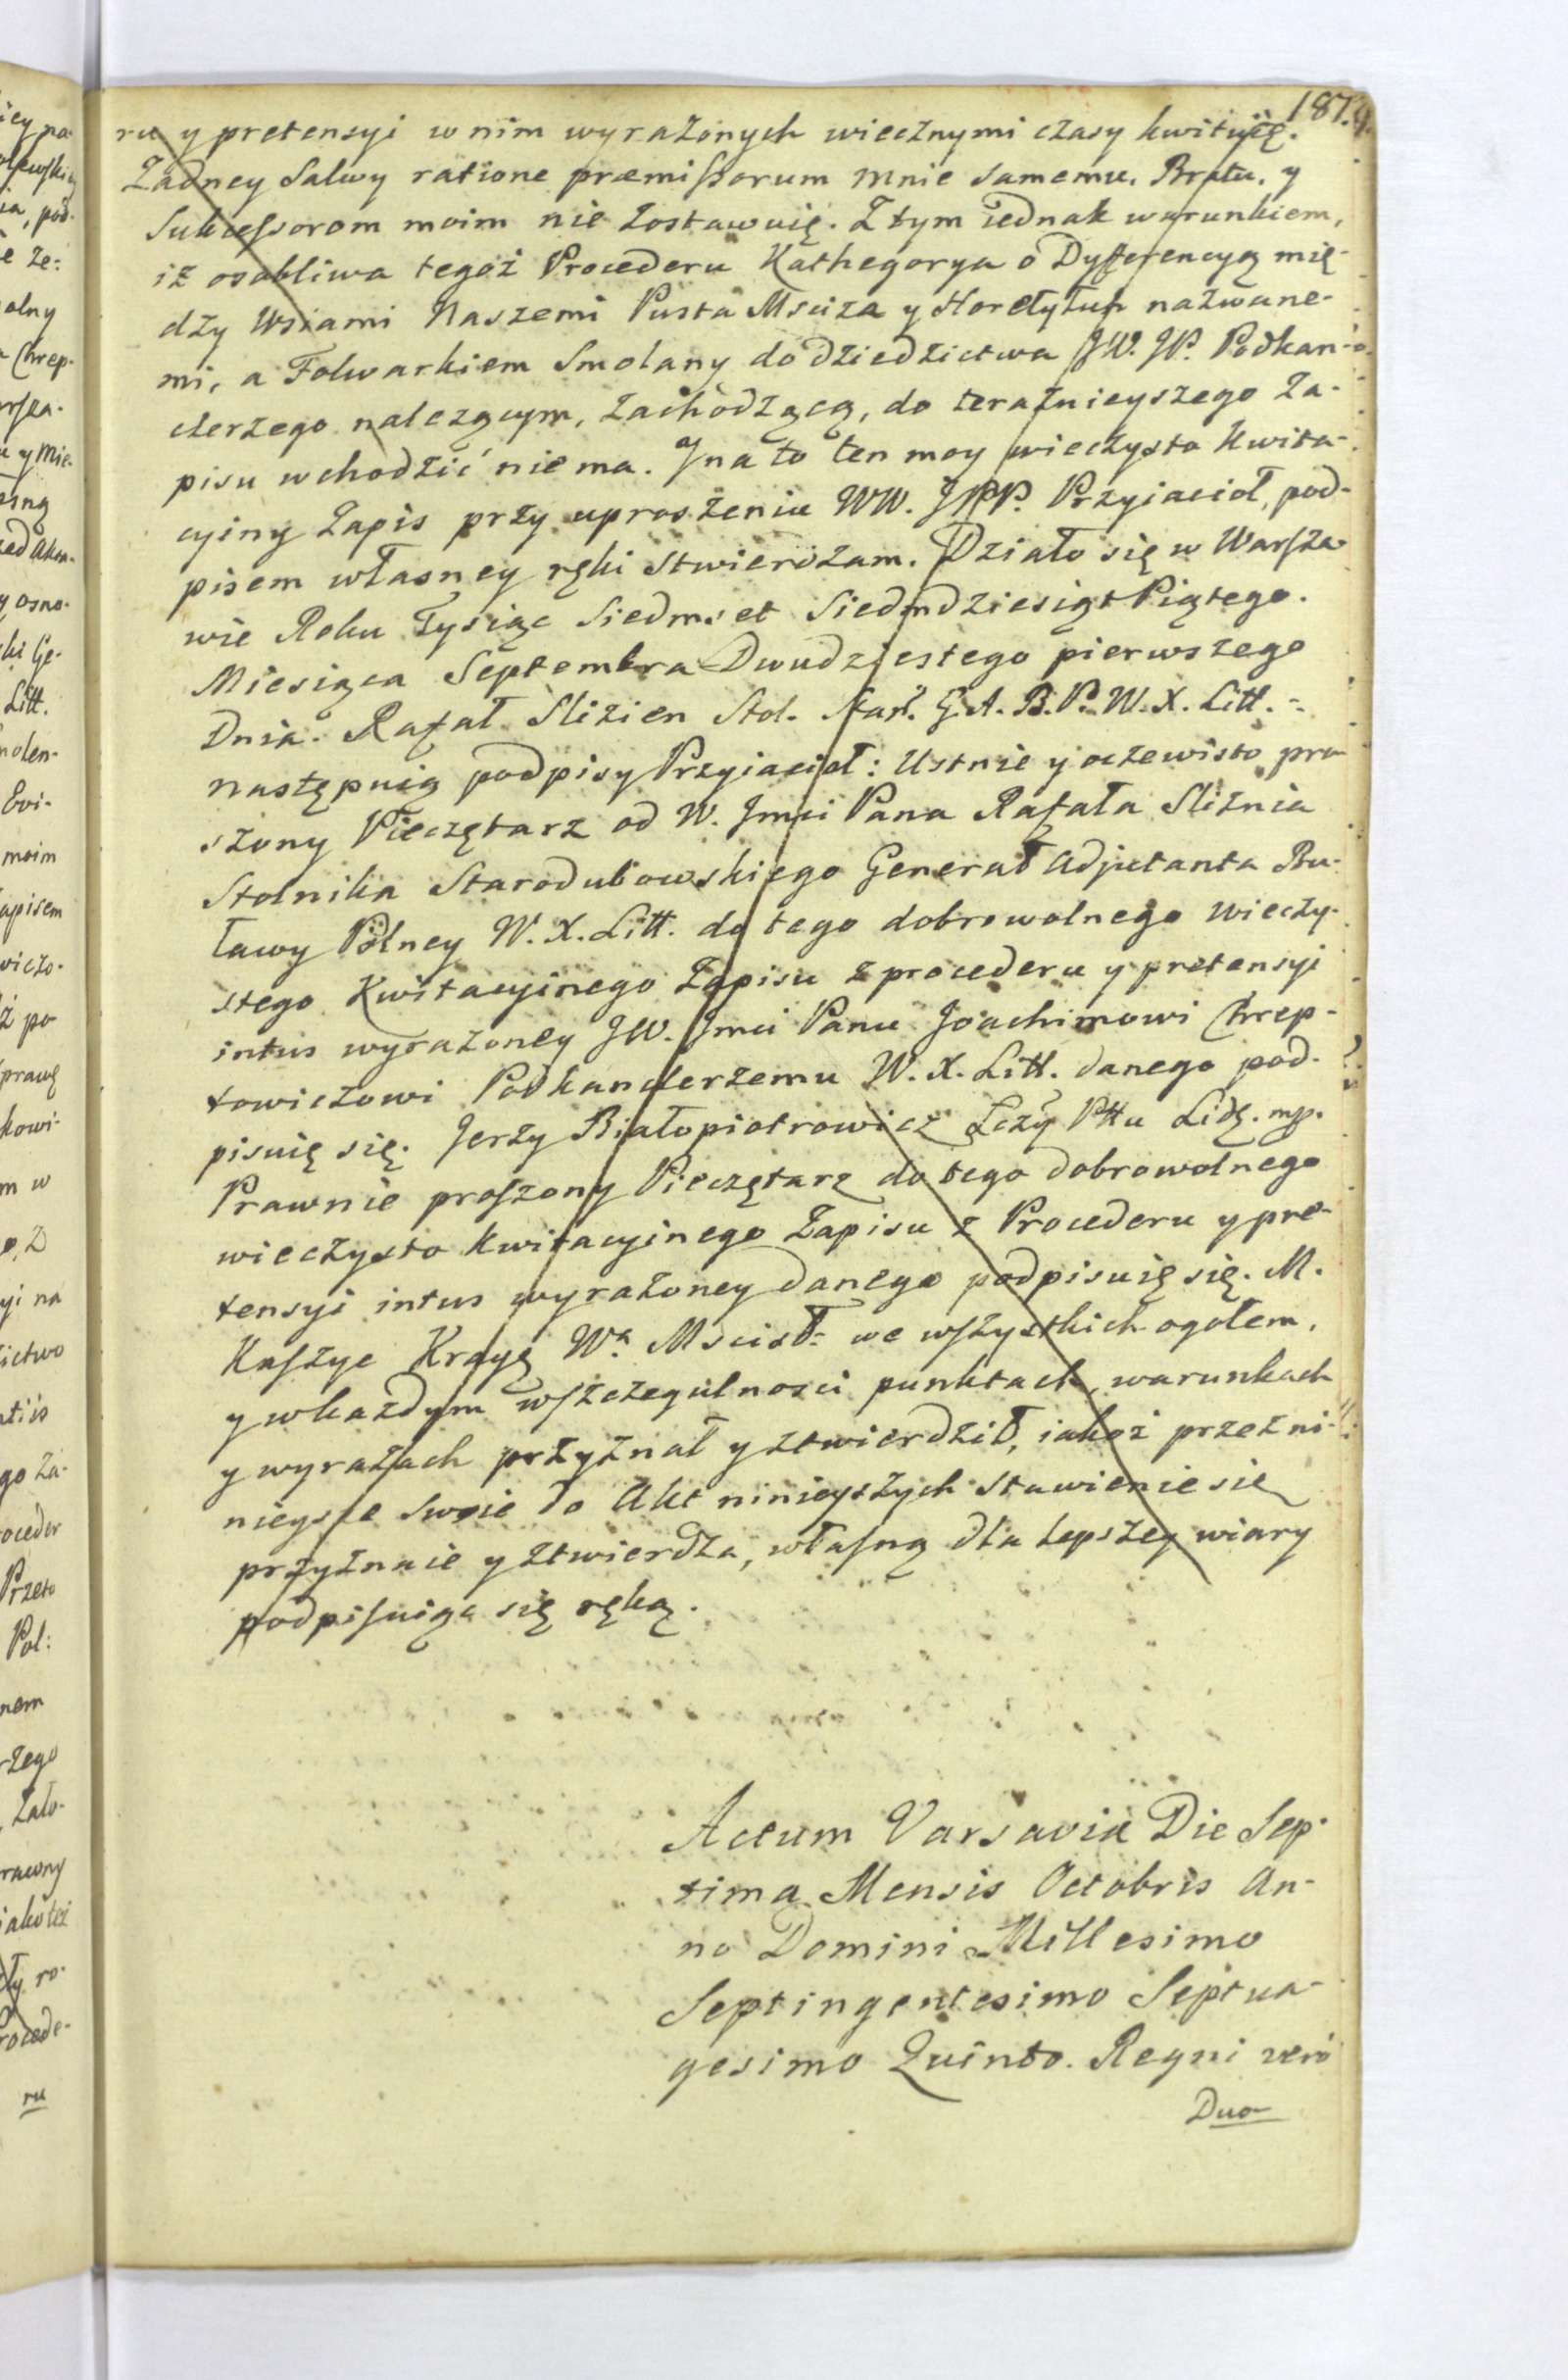 187.
ru y pretensyi w nim wyrażonych wiecznymi czasy kwituię.
Żadney Salwy ratione præmissorum mnie samemu, Bratu, y
Sukcessorom moim nie zostawuię. Z tym iednak warunkiem,
iż osobliwa tegoż Procederu Kathegorya o Dyfferencyą mię-
dzy Wsiami Naszemi Pusta Msciza y nazwane-
mi, a Folwarkiem Smolany do dziedzictwa JW. JP. Podkan-
clerzego nalezącym, zachodzącą, do teraznieyszego Za-
pisu wchodzić nie ma. Y na to ten moy wieczysto Kwita-
cyiny Zapis przy uproszeniu WW. JPP. Przyiacioł, pod-
pisem własney ręki stwierdzam. Działo się w Warsza-
wie Roku Tysiąc Siedmset Siedmdziesiąt Piątego.
Miesiąca Septembra Dwudziestego pierwszego
Dnia. Rafał Slizien Stol. Star. G. A. B. P. W. X. Litt. -
następuią podpisy Przyiacioł: Ustnie y oczewisto pro-
szony Pieczętarz od W. Jmci Pana Rafała Sliznia
Stolnika Starodubowskiego Generał Adjutanta Bu-
ławy Polney W. X. Litt. do tego dobrowolnego wieczy-
stego Kwitacyinego Zapisu z procederu y pretensyi
intus wyrażoney JW. Jmci Panu Joachimowi Chrep-
towiczowi Podkanclerzemu W. X. Litt. danego pod-
pisuię się. Jerzy Białopiotrowicz Pttu Lidz. mp.
Prawnie proszony Pieczętarz do tego dobrowolnego
wieczysto kwitacyinego Zapisu z Procederu y pre-
tensyi intus wyrażoney danego podpisuię się. M.
Kaszyc Wa Mscisł: we wszystkich ogołem,
y w każdym wszczegulnosci punktach, warunkach
y wyrazach przyznał y ztwierdził, iakoż przez ni-
nieysze swoie do Akt ninieyszych stawienie się
przyznaie y ztwierdza, własną dla lepszey wiary
podpisuiąc się ręką.
Actum Varsaviæ Die Sep-
tima Mensis Octobris An-
no Domini Millesimo
Septingentesimo Septua-
gesimo Quinto. Regni verò
Duo-